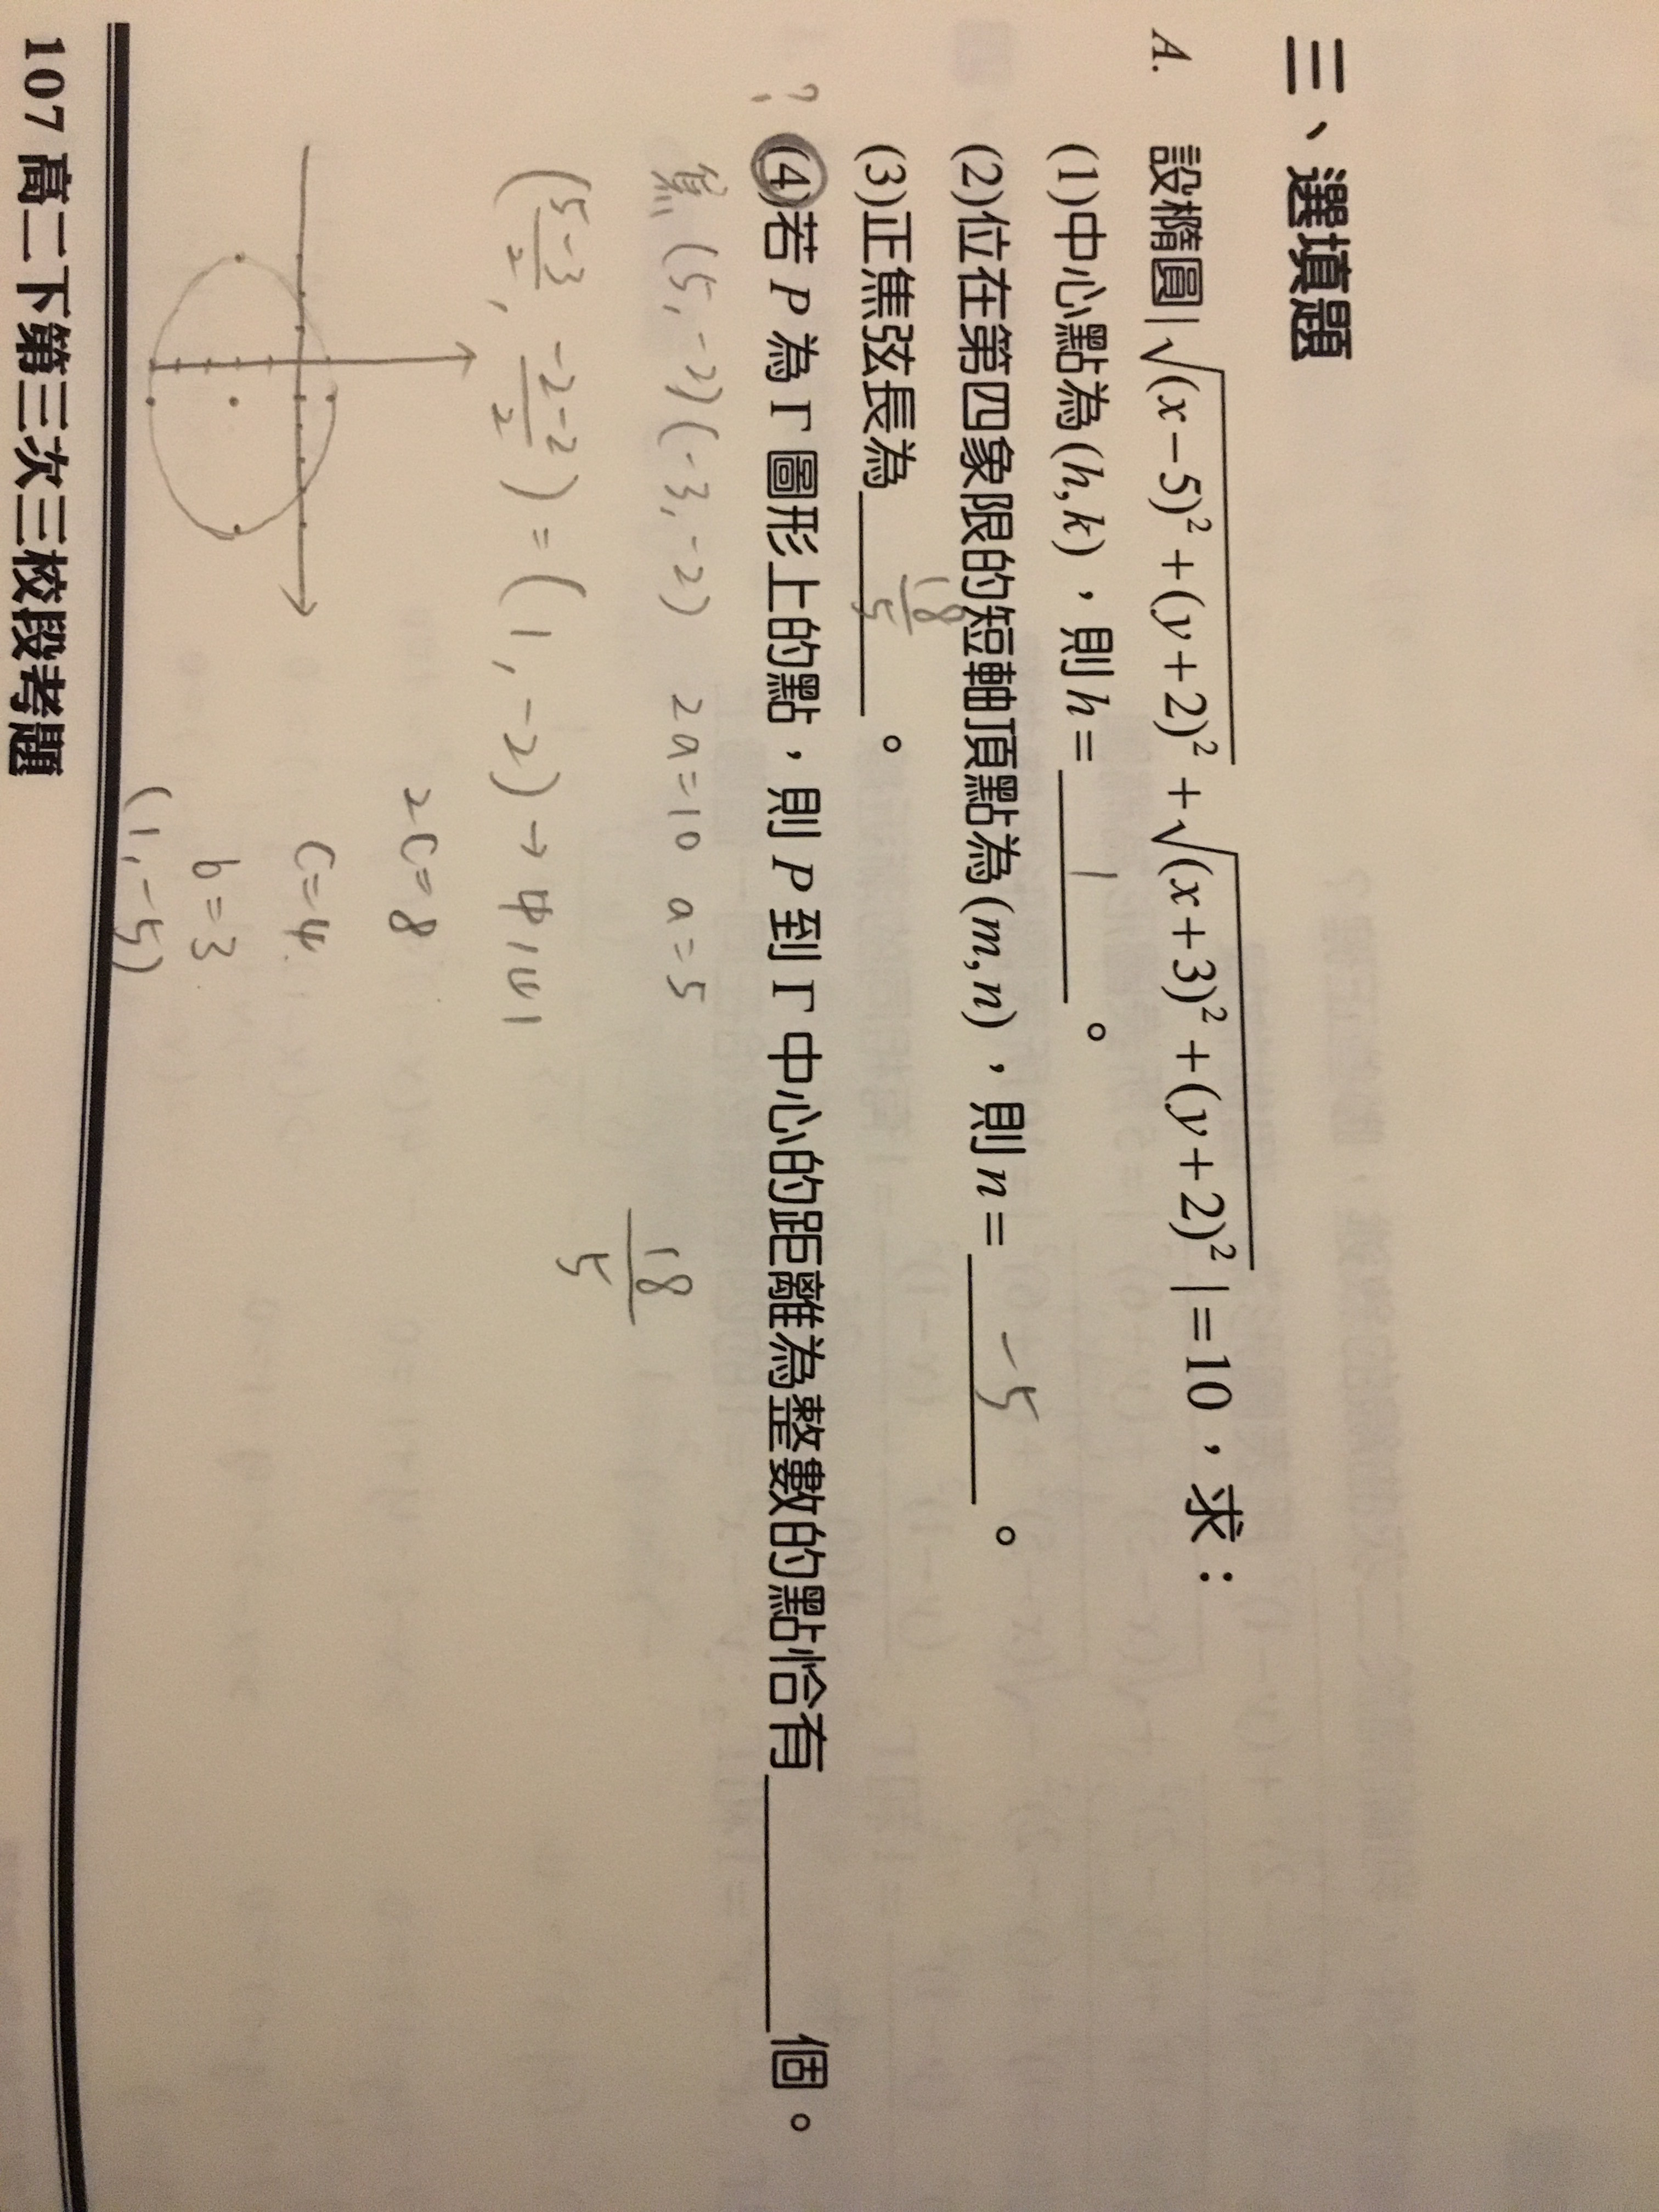 三、選填題
A. 設橢圓|√(x−5)²+(y+2)²+√(x+3)²+(y+2)²|=10，求：
(1)中心點為(h,k)，則h= 1 。
(2)位在第四象限的短軸頂點為(m,n)，則n= −5 。
(3)正焦弦長為 18/5 。
? (4)若P為Γ圖形上的點，則P到Γ中心的距離為整數的點恰有______個。
焦(5,-2)(-3,-2) 2a=10 a=5
18/5
(5-3/2, -2-2/2)=(1,-2)→中心
2c=8
c=4
b=3
(1,-5)
107 高二下第三次三校段考題